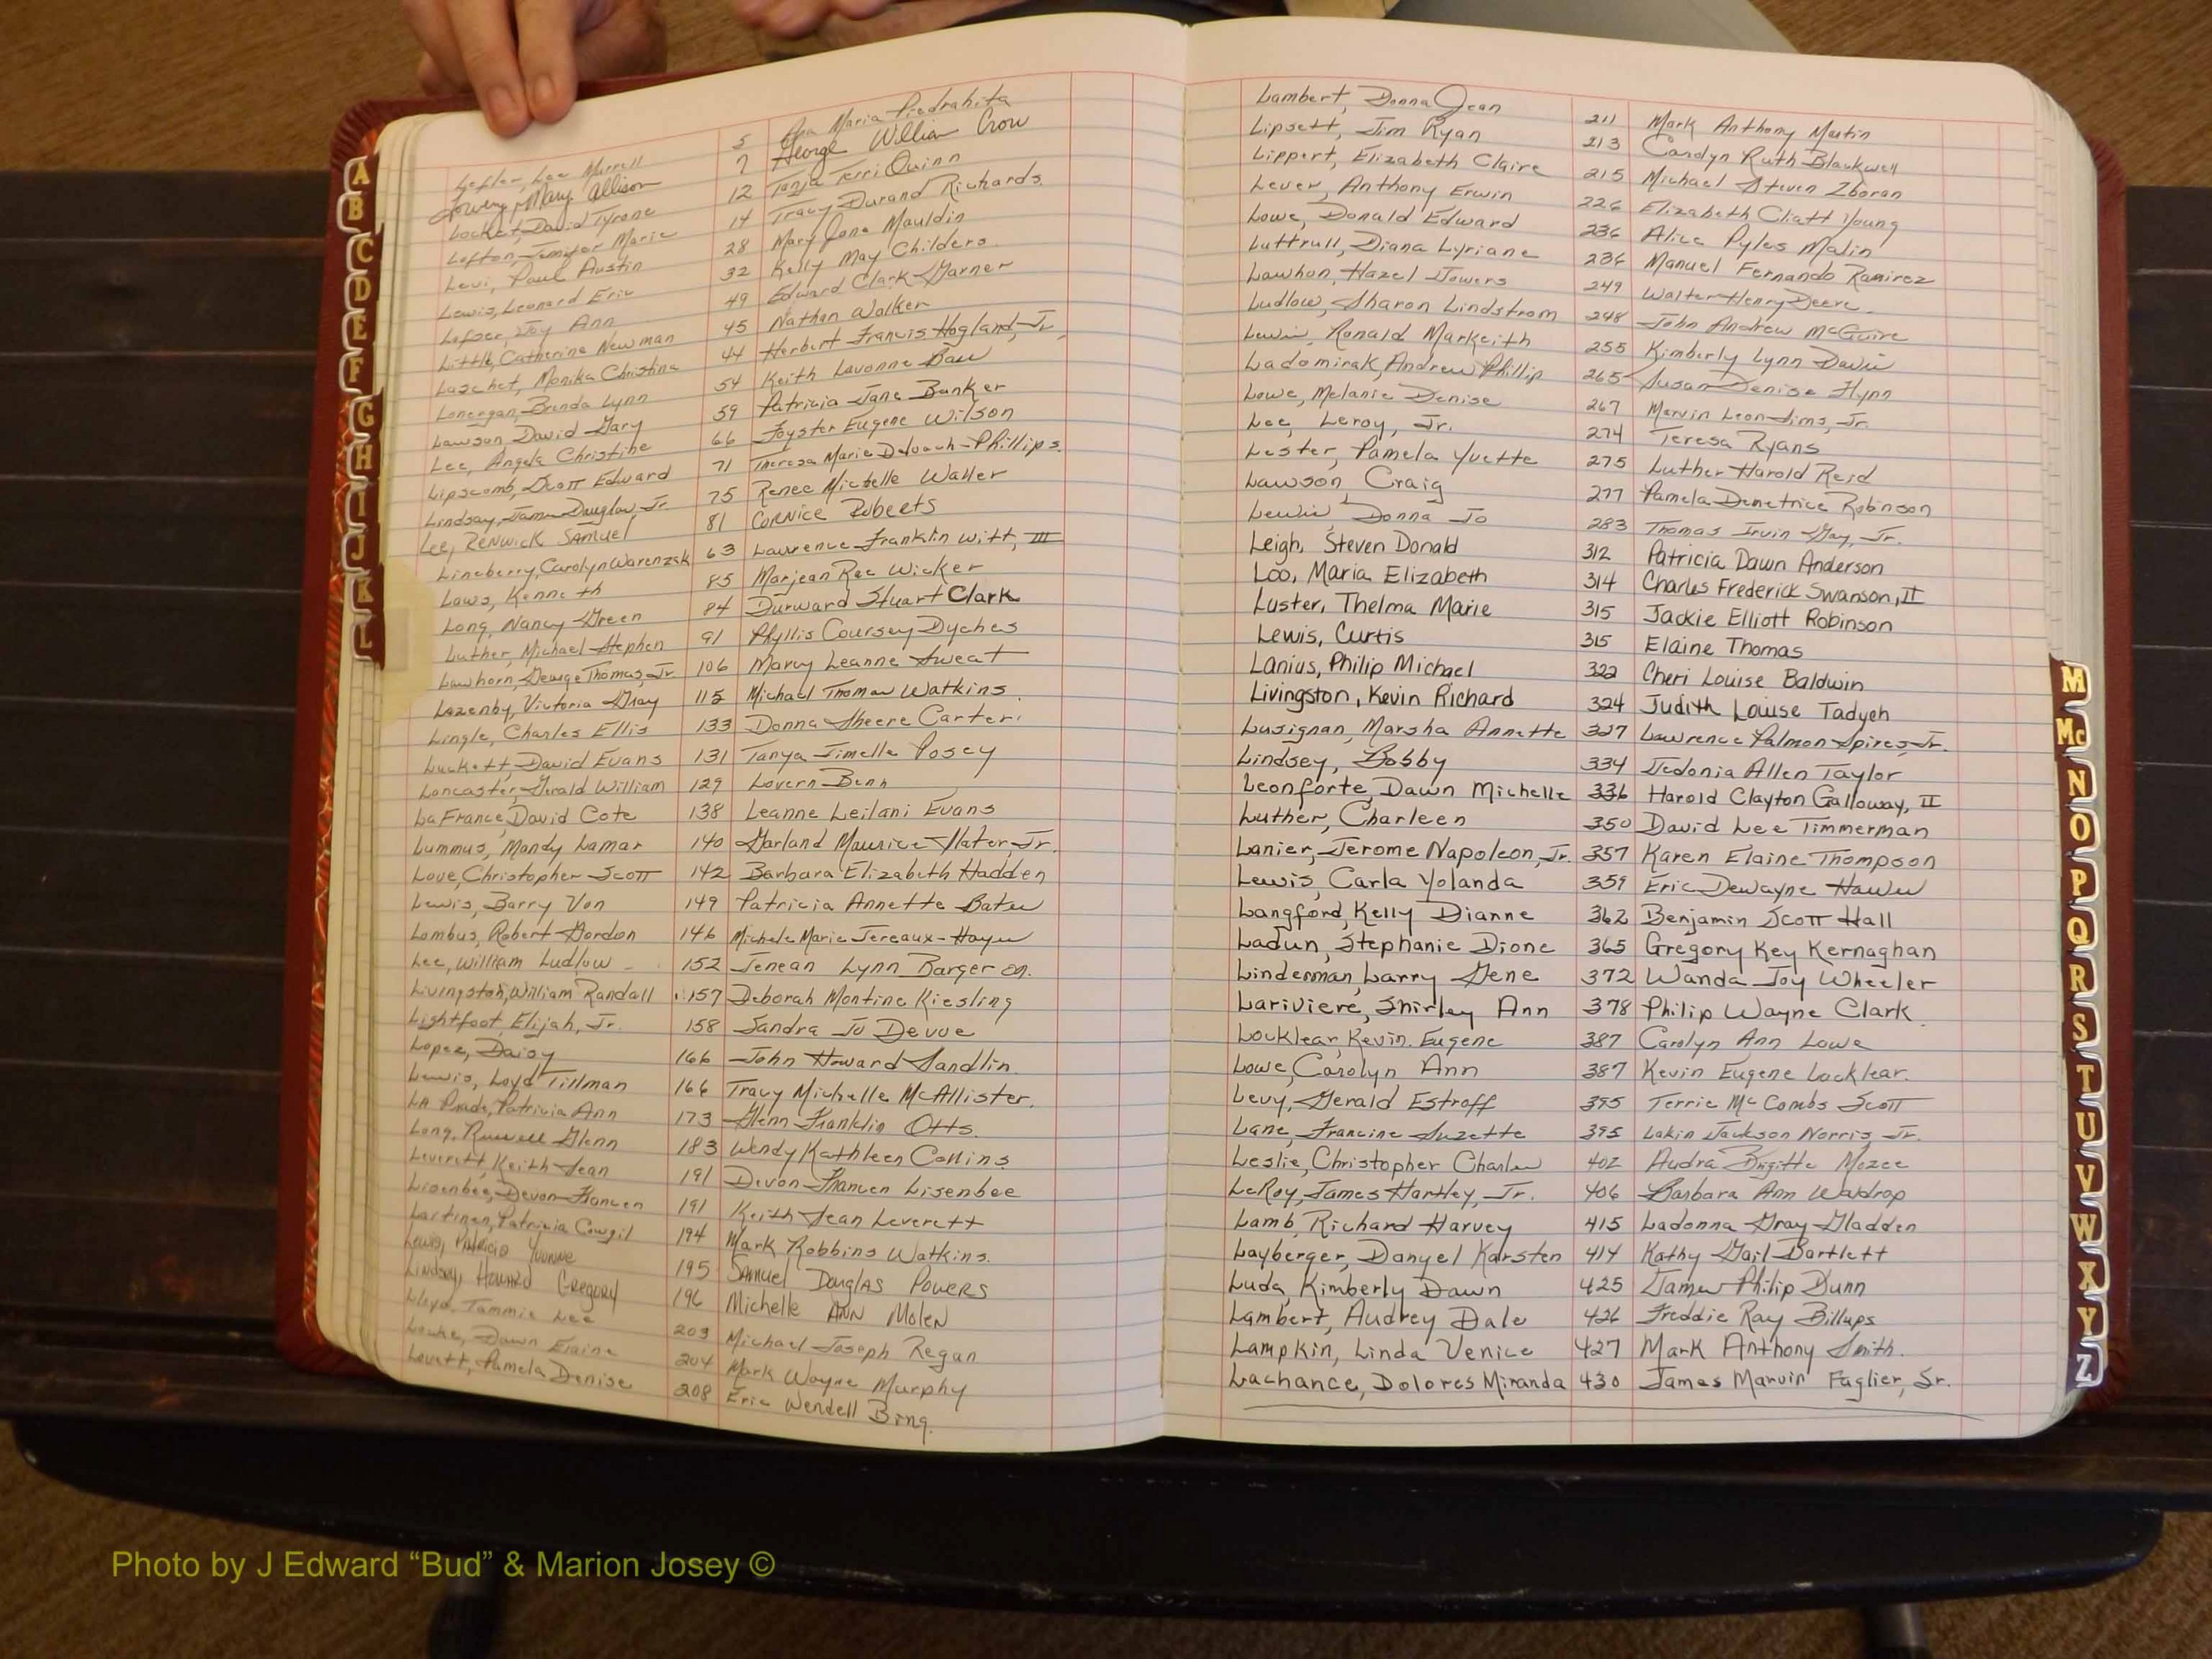 A
B
C
D
E
F
G
H
I
J
K
L
Lefler, Lee Murrell 5 Ana Maria Piedrahita
Lowery, Mary Allison 7 George William Crow
Locket, David Tyrone 12 Tanja Terri Quinn
Lofton, Jennifer Marie 14 Tracy Durand Richards
Levi, Paul Austin 28 Mary Jane Mauldin
Lewis, Leonard Eric 32 Kelly May Childers
Lefser, Joy Ann 49 Edward Clark Garner
Little, Catherine Newman 45 Nathan Walker
Laschet, Monika Christina 44 Herbert Francis Hogland, Jr.
Lonergan, Brenda Lynn 54 Keith Lavonne
Lawson David Gary 59 Patricia Jane Banker
Lee, Angela Christine 66 Foyster Eugene Wilson
Lipscomb, Scott Edward 71 Theresa Marie Deloach-Phillips
Lindsay, James Douglas, Jr. 75 Renee Michelle Waller
Lee, Renwick Samuel 81 Cornice Roberts
Lineberry, Carolyn Warenzak 63 Lawrence Franklin Witt, III
Laws, Kenneth 85 Marjean Rae Wicker
Long, Nancy Green 84 Durward Stuart Clark
Luther, Michael Stephen 91 Phyllis Coursey Dyches
Lawhorn, George Thomas, Jr. 106 Marcy Leanne Sweat
Lazenby, Victoria Gray 115 Michael Thomas Watkins
Lingle, Charles Ellis 133 Donna Sheere Carter
Luckett, David Evans 131 Tanya Jimelle Posey
Loncaster, Gerald William 129 Lovern Benn
LaFrance, David Cote 138 Leanne Leilani Evans
Lummus, Mandy Lamar 140 Garland Maurice Slater, Jr.
Love, Christopher Scott 142 Barbara Elizabeth Hadden
Lewis, Barry Von 149 Patricia Annette Bates
Lombus, Robert Gordon 146 Michele Marie Jereaux-Hayes
Lee, William Ludlow 152 Jenean Lynn Bargeron
Livingston, William Randall 157 Deborah Montine Kiesling
Lightfoot, Elijah, Jr. 158 Sandra Jo Devoe
Lopez, Daisy 166 John Howard Sandlin
Lewis, Loyd Tillman 166 Tracy Michelle McAllister
LA Prade, Patricia Ann 173 Glenn Franklin Otts
Long, Russell Glenn 183 Wendy Kathleen Collins
Leverett, Keith Sean 191 Devon Frances Lisenbee
Lisenbee, Devon Frances 191 Keith Sean Leverett
Lartinen, Patricia Cowgil 194 Mark Robbins Watkins
Lewis, Patricia Yvonne 195 Samuel Douglas Powers
Lindsey, Howard Gregory 196 Michelle Ann Molen
Lloyd, Tammie Lee 203 Michael Joseph Regan
Locke, Dawn Elaine 204 Mark Wayne Murphy
Lovett, Pamela Denise 208 Eric Wendell Bing
Lambert, Donna Jean 211 Mark Anthony Martin
Lipsett, Jim Ryan 213 Carolyn Ruth Blackwell
Lippert, Elizabeth Claire 215 Michael Steven Zboran
Lever, Anthony Erwin 226 Elizabeth Cliatt Young
Lowe, Donald Edward 236 Alice Pyles Malin
Luttrull, Diana Lyriane 236 Manuel Fernando Ramirez
Lawhon, Hazel Towers 249 Walter Henry Deere
Ludlow, Sharon Lindstrom 248 John Andrew McGuire
Lewis, Ronald Markeith 255 Kimberly Lynn Davis
Ladomirak, Andrew Phillip 265 Susan Denise Flynn
Lowe, Melanie Denise 267 Marvin Leon Sims, Jr.
Lee, Leroy, Jr. 274 Teresa Ryans
Lester, Pamela Yvette 275 Luther Harold Reid
Lawson, Craig 277 Pamela Demetrice Robinson
Lewis, Donna Jo 283 Thomas Irvin Gay, Jr.
Leigh, Steven Donald 312 Patricia Dawn Anderson
Loo, Maria Elizabeth 314 Charles Frederick Swanson, II
Luster, Thelma Marie 315 Jackie Elliott Robinson
Lewis, Curtis 315 Elaine Thomas
Lanius, Philip Michael 322 Cheri Louise Baldwin
Livingston, Kevin Richard 324 Judith Louise Tadych
Lusignan, Marsha Annette 327 Lawrence Palmon Spires, Jr.
Lindsey, Bobby 334 Jedonia Allen Taylor
Leonforte, Dawn Michelle 336 Harold Clayton Galloway, II
Luther, Charleen 350 David Lee Timmerman
Lanier, Jerome Napoleon, Jr. 357 Karen Elaine Thompson
Lewis, Carla Yolanda 359 Eric Dewayne Hawes
Langford, Kelly Dianne 362 Benjamin Scott Hall
Ladun, Stephanie Dione 365 Gregory Key Kernaghan
Linderman, Larry Gene 372 Wanda Joy Wheeler
Lariviere, Shirley Ann 378 Philip Wayne Clark
Locklear, Kevin Eugene 387 Carolyn Ann Lowe
Lowe, Carolyn Ann 387 Kevin Eugene Locklear
Levy, Gerald Estroff 395 Terrie McCombs Scott
Lane, Francine Suzette 395 Lakin Jackson Norris, Jr.
Leslie, Christopher Charles 402 Audra Brigitte Mozee
LeRoy, James Hartley, Jr. 406 Barbara Ann Waldrop
Lamb, Richard Harvey 415 Ladonna Gray Gladden
Layberger, Danyel Karsten 414 Kathy Gail Bartlett
Luda, Kimberly Dawn 425 James Philip Dunn
Lambert, Audrey Dale 426 Freddie Ray Billups
Lampkin, Linda Venice 427 Mark Anthony Smith
Lachance, Dolores Miranda 430 James Marvin Faglier, Sr.
M
Mc
N
O
P
Q
R
S
T
U
V
W
X
Y
Z
Photo by J Edward “Bud” & Marion Josey ©